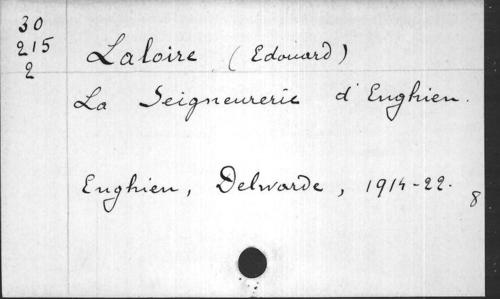 30
215
2
Laloire (Edouard)
La Seigneurerie d'Enghien.
Enghien, Delwarde, 1914-22.
8